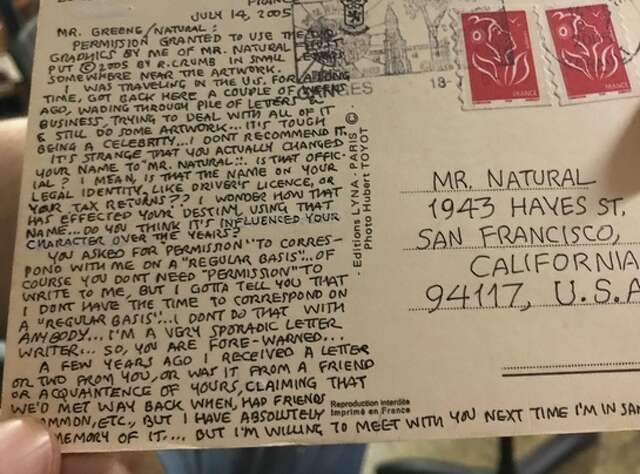 FRANCE
JULY 14, 2005
MR. GREENE/NATURAL:
PERMISSION GRANTED TO USE THE
GRAPHICS BY ME OF MR. NATURAL
PUT © 2005 BY R. CRUMB IN SMALL
SOMEWHERE NEAR THE ARTWORK.
I WAS TRAVELING IN THE U.S. FOR A LONG
TIME, GOT BACK HERE A COUPLE OF WEEKS
AGO, WADING THROUGH PILE OF LETTERS &
BUSINESS, TRYING TO DEAL WITH ALL OF IT
& STILL DO SOME ARTWORK... IT'S TOUGH
BEING A CELEBRITY... I DON'T RECOMMEND IT.
IT'S STRANGE THAT YOU ACTUALLY CHANGED
YOUR NAME TO "MR. NATURAL"... IS THAT OFFIC-
IAL? I MEAN, IS THAT THE NAME ON YOUR
LEGAL IDENTITY, LIKE DRIVER'S LICENCE, OR
YOUR TAX RETURNS?? I WONDER HOW THAT
HAS EFFECTED YOUR DESTINY, USING THAT
NAME... DO YOU THINK IT'S INFLUENCED YOUR
CHARACTER OVER THE YEARS?
YOU ASKED FOR PERMISSION "TO CORRES-
POND WITH ME ON A "REGULAR BASIS"... OF
COURSE YOU DONT NEED "PERMISSION" TO
WRITE TO ME, BUT I GOTTA TELL YOU THAT
I DONT HAVE THE TIME TO CORRESPOND ON
A "REGULAR BASIS"... I DONT DO THAT WITH
ANYBODY... I'M A VERY SPORADIC LETTER
WRITER... SO, YOU ARE FORE-WARNED...
A FEW YEARS AGO I RECEIVED A LETTER
OR TWO FROM YOU, OR WAS IT FROM A FRIEND
OR ACQUAINTENCE OF YOURS, CLAIMING THAT
WE'D MET WAY BACK WHEN, HAD FRIENDS
OMMON, ETC., BUT I HAVE ABSOLUTELY
MEMORY OF IT... BUT I'M WILLING TO MEET WITH YOU NEXT TIME I'M IN SAN
18-
FRANCE
FRANCE
- Editions LYNA - PARIS ©
Photo Hubert TOYOT
Reproduction interdite
Imprimé en France
MR. NATURAL
1943 HAYES ST.
SAN FRANCISCO,
CALIFORNIA
94117, U.S.A